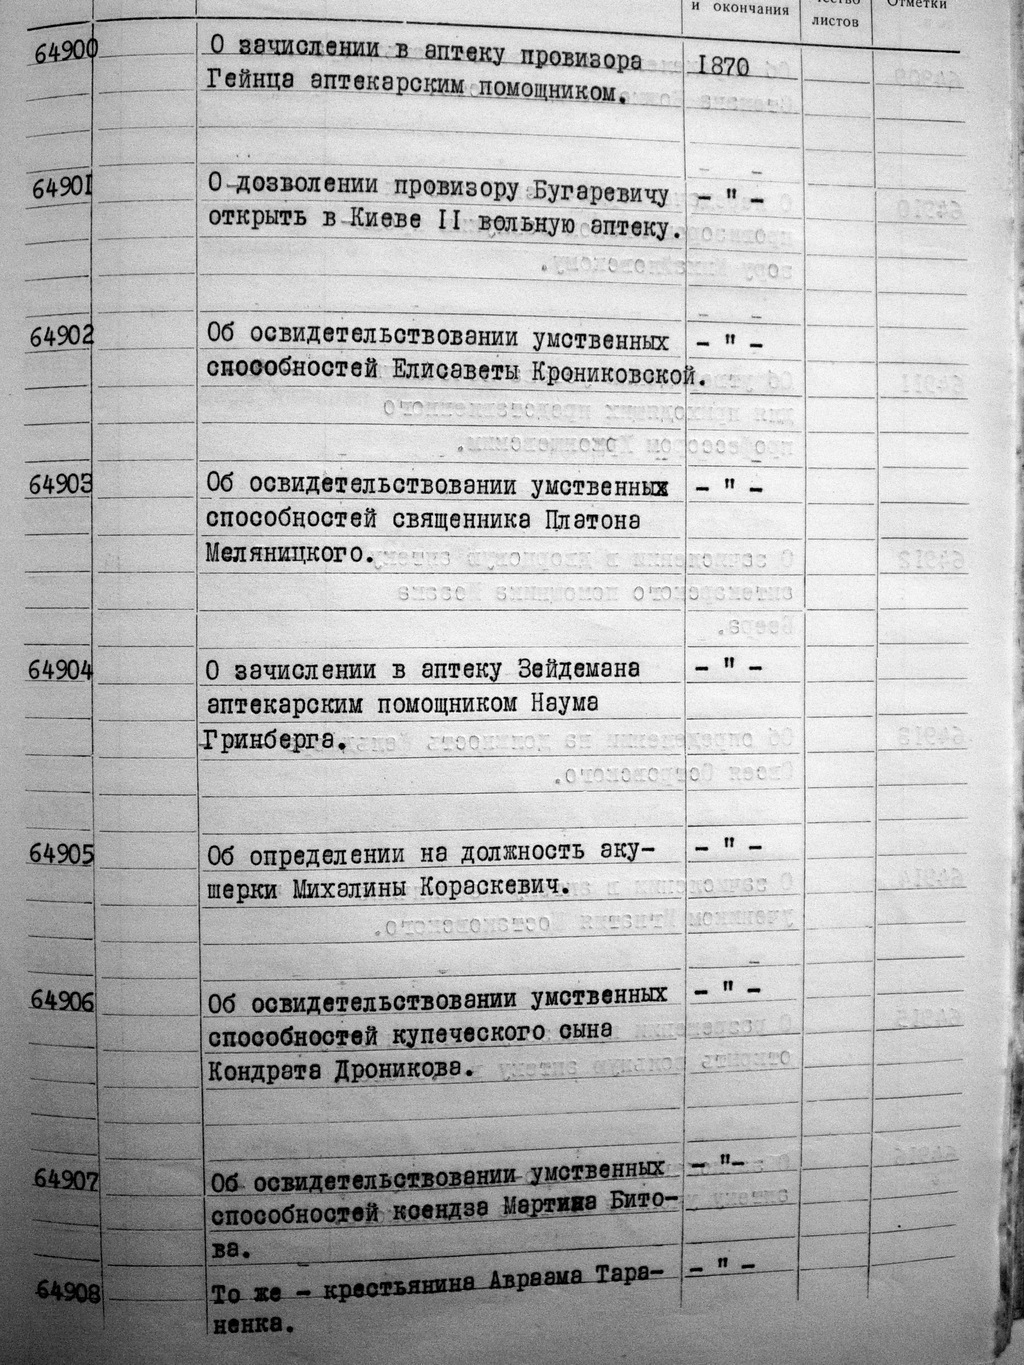 и окончания
листов
Отметки
64900 О зачислении в аптеку провизора 1870
Гейнца аптекарским помощником.
64901 О дозволении провизору Бугаревичу - " -
открыть в Киеве II вольную аптеку.
64902 Об освидетельствовании умственных - " -
способностей Елисаветы Крониковской.
64903 Об освидетельствовании умственных - " -
способностей священника Платона
Меляницкого.
64904 О зачислении в аптеку Зейдемана - " -
аптекарским помощником Наума
Гринберга.
64905 Об определении на должность аку- - " -
шерки Михалины Кораскевич.
64906 Об освидетельствовании умственных - " -
способностей купеческого сына
Кондрата Дроникова.
64907 Об освидетельствовании умственных - "-
способностей ксендза Мартина Бито-
ва.
64908 То же - крестьянина Авраама Тара- - " -
ненка.